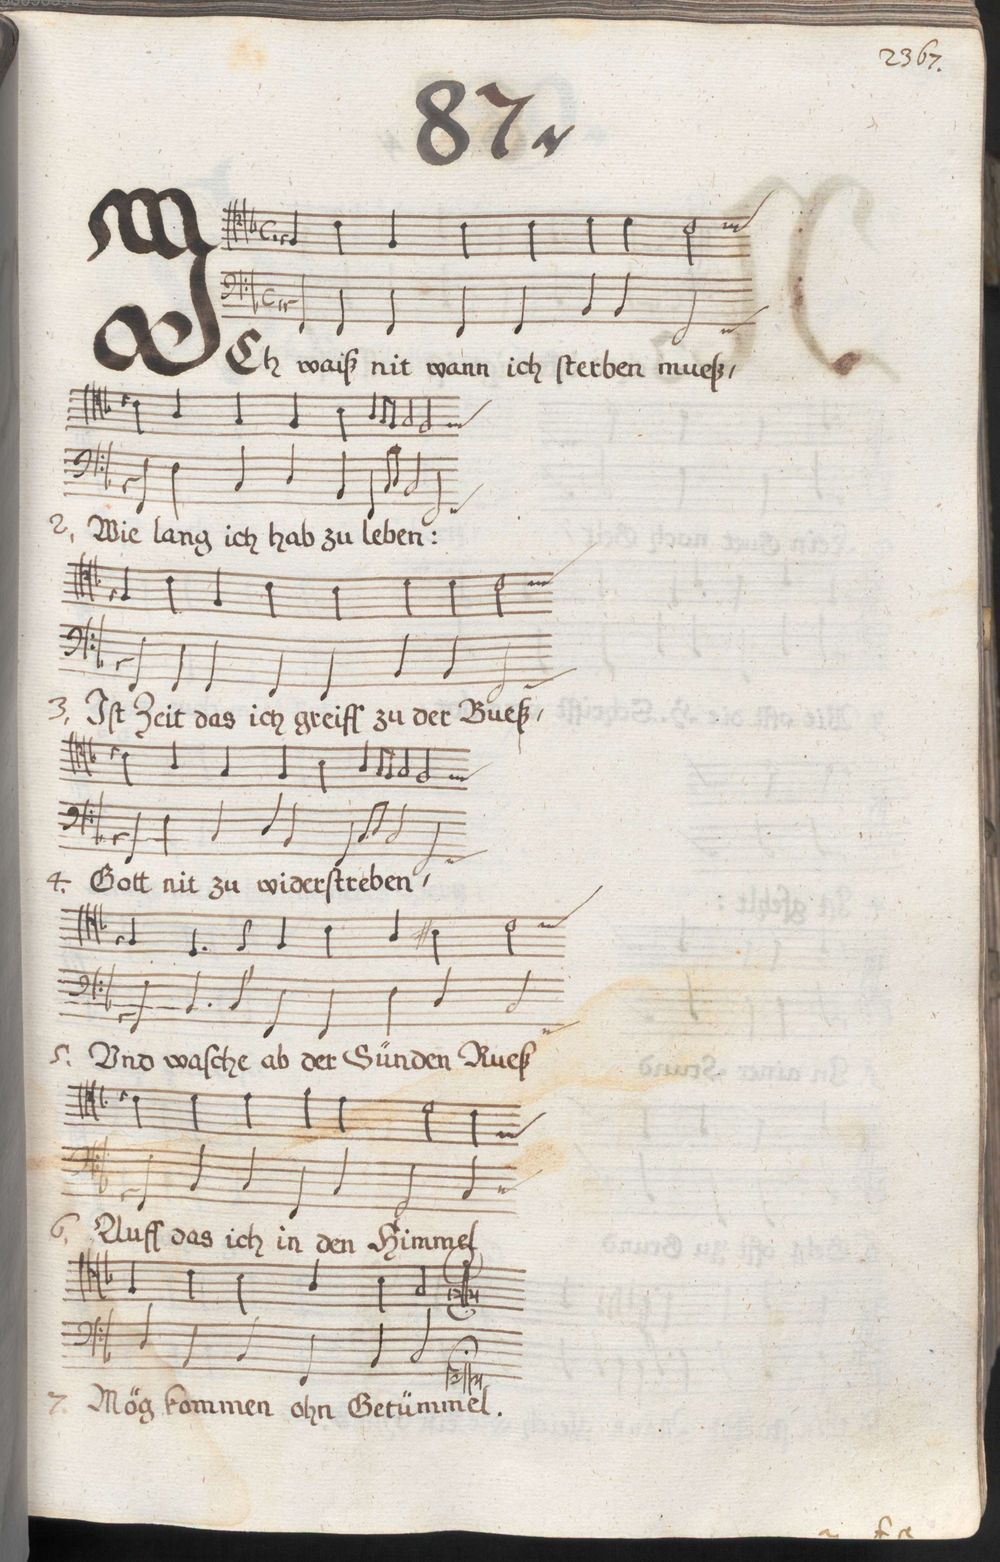 2367.
87
ICh waiß nit wann ich sterben mueß,
2. Wie lang ich hab zu leben:
3. Ist Zeit das ich greiff zu der Bueß,
4. Gott nit zu widerstreben,
5. Vnd wasche ab der Sünden Rueß
6. Auff das ich in den Himmel
7. Mög kommen ohn Getümmel.